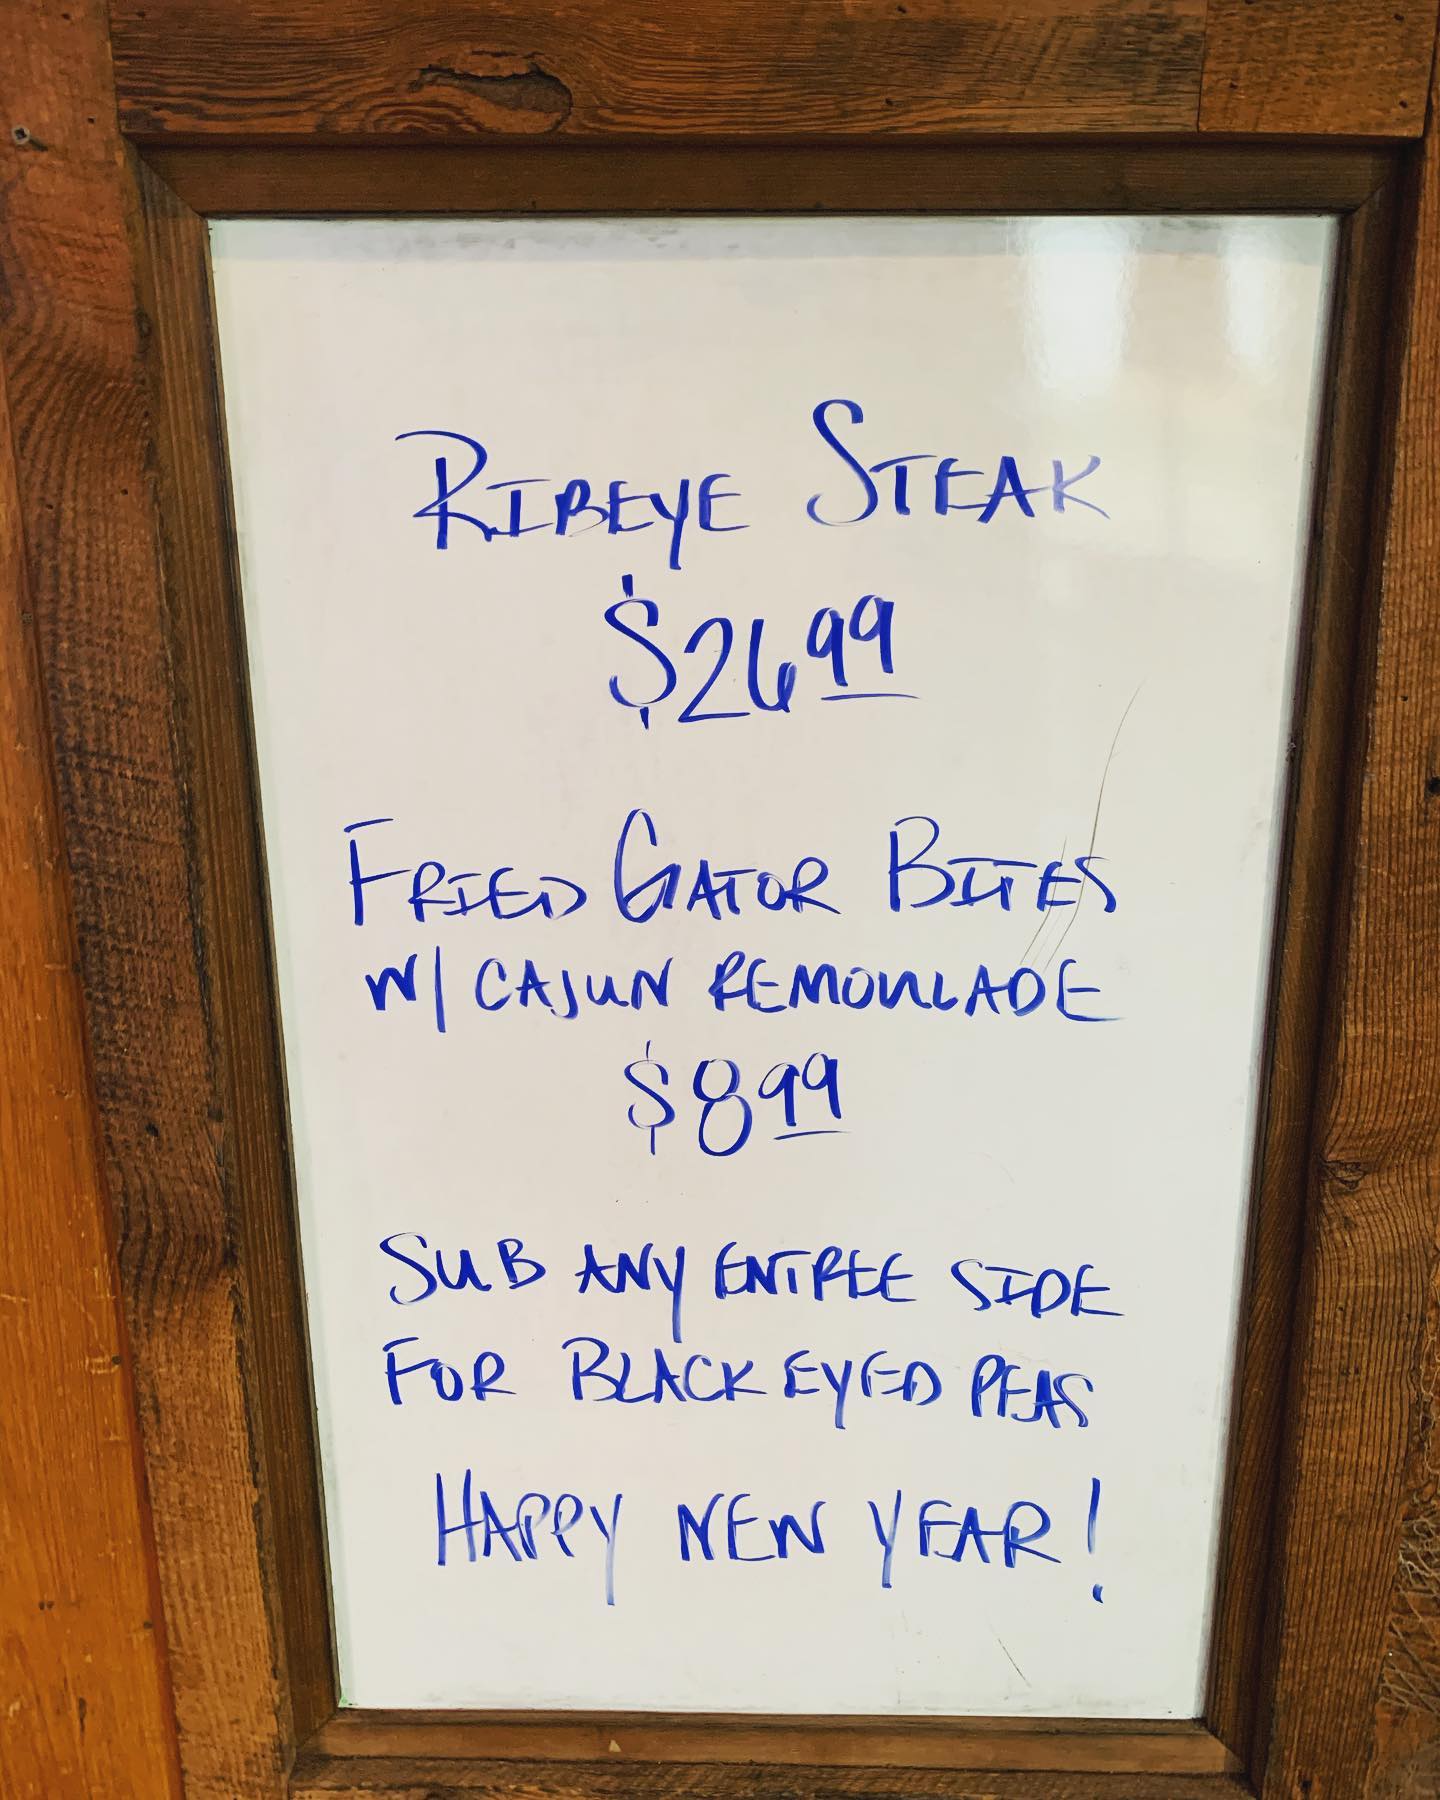 RIBEYE STEAK
$26 99
FRIED GATOR BITES
W/ CAJUN REMOULADE
$8 99
SUB ANY ENTREE SIDE
FOR BLACK EYED PEAS
HAPPY NEW YEAR!